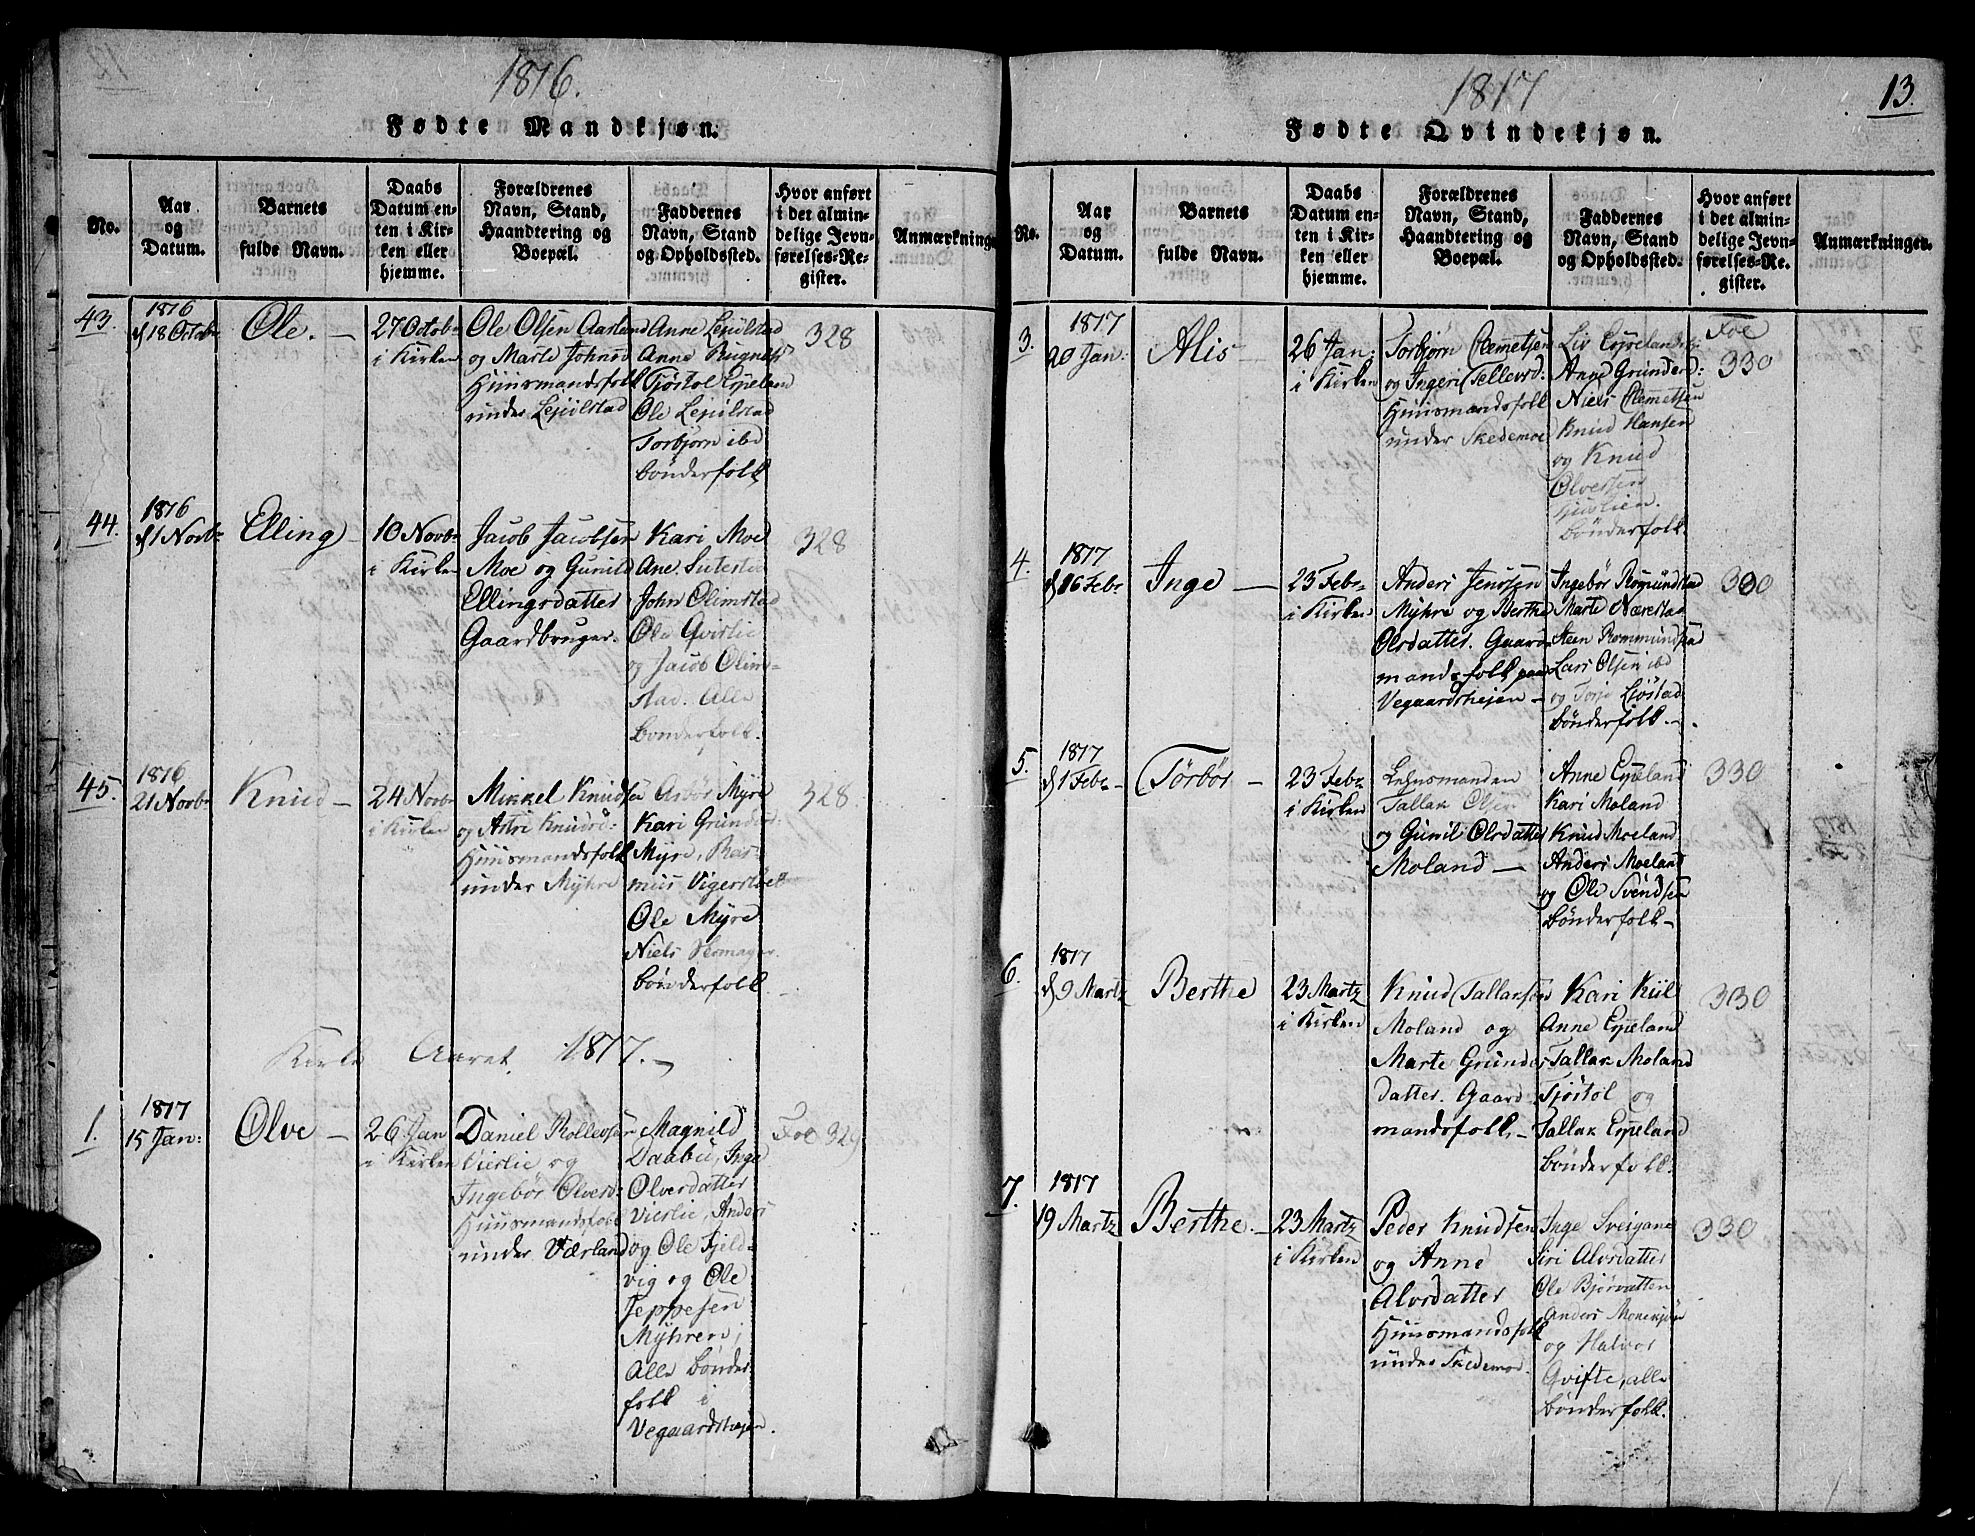 1816.
Fødte Mandkjøn.
No.
Aar og Datum.
Barnets fulde Navn.
Daabs Datum enten i Kirken eller hjemme.
Forældrenes Navn, Stand, Haandtering og Boepæl.
Faddernes Navn, Stand og Opholdssted.
Hvor anført i det almindelige Jevnførelses-Register.
Anmærkninger
43.
1816
d 18 Octobr
Ole. —
27 Octobr
i Kirken
Ole Olsen Aarland
og Marte Johnsd
Huusmandsfolk
under Lejulstad
Anne Lejulstad
Anne Rugnæs
Tjøstol Espeland
Ole Lejulstad
Torbjørn ibd
bønderfolk
328
44.
1816
d 1 Novbr
Elling —
10 Novbr
i Kirken
Jacob Jacobsen
Moe og Gunild
Ellingsdatter
Gaardbruger.
Kari Moe
Ane
John Olimstad
Ole Qvislie
og Jacob Olim-
stad. Alle
bønderfolk.
328
45.
1816
21 Novbr
Knud —
24 Novbr
i Kirken
Mikkel Knudsen
og Astri Knudsd:
Huusmandsfolk
under Myhre
Asbør Myre
Kari Gunders:
Myre, Ras-
mus Vigerstøel
Ole Myre
Niels Skomager
bønderfolk
328.
Aaret 1817. —
1.
1817
15 Jan:
Olve —
26 Jan
i Kirken
Daniel Rollevsen
Vierlie og
Ingebør Olversd:
Huusmandsfolk
under Værland
Magnild
Daabu, Inge
Olversdatter
Vierlie, Anders
og Ole Fjeld-
vig og Ole
Jeppesen
Myhren;
Alle bønder
folk i
Vegaardsheien.
Foe 329
1817
13.
Fødte Qvindekjøn.
No.
Aar og Datum.
Barnets fulde Navn.
Daabs Datum enten i Kirken eller hjemme.
Forældrenes Navn, Stand, Haandtering og Boepæl.
Faddernes Navn, Stand og Opholdssted.
Hvor anført i det almindelige Jevnførelses-Register.
Anmærkninger.
3.
1817
20 Jan:
Alis —
26 Jan:
i Kirken
Torbjørn Clemetsen
og Ingeri Tellevsd:
Huusmandsfolk
under Skedemoe
Liv Espeland
Anne Gundersd:
Niels Clemetsen
Knud Hansen
og Knud
Olversen
bønderfolk.
Foe
330
4.
1817
d 16 Febr
Inge —
23 Febr
i Kirken
Anders Jensen
Myhre og Berthe
Olsdatter. Gaard
mandsfolk paa
Vegaardsheien —
Ingebør Romundstad
Marte Nærestad
Steen Rommundstad
Lars Olsen ibd
og Torje Liøstad
bønderfolk. —
330
5.
1817
d 1 Febr —
Torbør —
23 Febr
i Kirken
Lehnsmanden
Tallak Olsen
og Gunil Olsdatter
Moland —
Anne Espeland
Kari Moland
Knud Moeland
Anders Moeland
og Ole Svendsen
bønderfolk —
330
6.
1817
d 9 Martz
Berthe
23 Martz
i Kirken
Knud Tallaksen
Moland og
Marte Gunders
datter. Gaard
mandsfolk —
Kari Kiil
Anne Espeland
Tallak Moland
Tjøstol og
Tallak Espeland
bønderfolk.
330
7.
1817
19 Martz
Berthe. —
23 Martz
i Kirken
Peder Knudsen
og Anne
Alvsdatter
Huusmandsfolk
under Skedemoe.
Inge Sveigane
Siri Alvsdatter
Ole Bjørvatten
Anders Monekjøn
og Halvor
Qvifte, alle
bønderfolk.
330